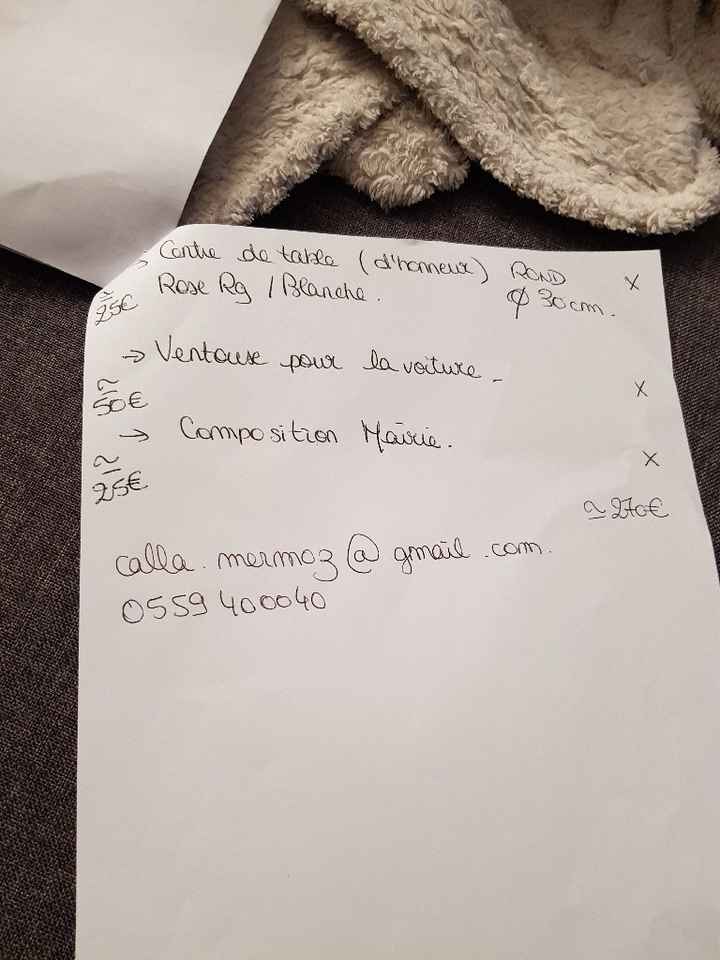 → Centre de table (d'honneur) ROND x
≃ 25€ Rose Rg / Blanche. ⌀ 30cm.
→ Ventouse pour la voiture -
≃ 50€ x
→ Composition Mairie.
≃ 25€ x
≃ 270€
calla.mermoz@gmail.com.
0559 400040